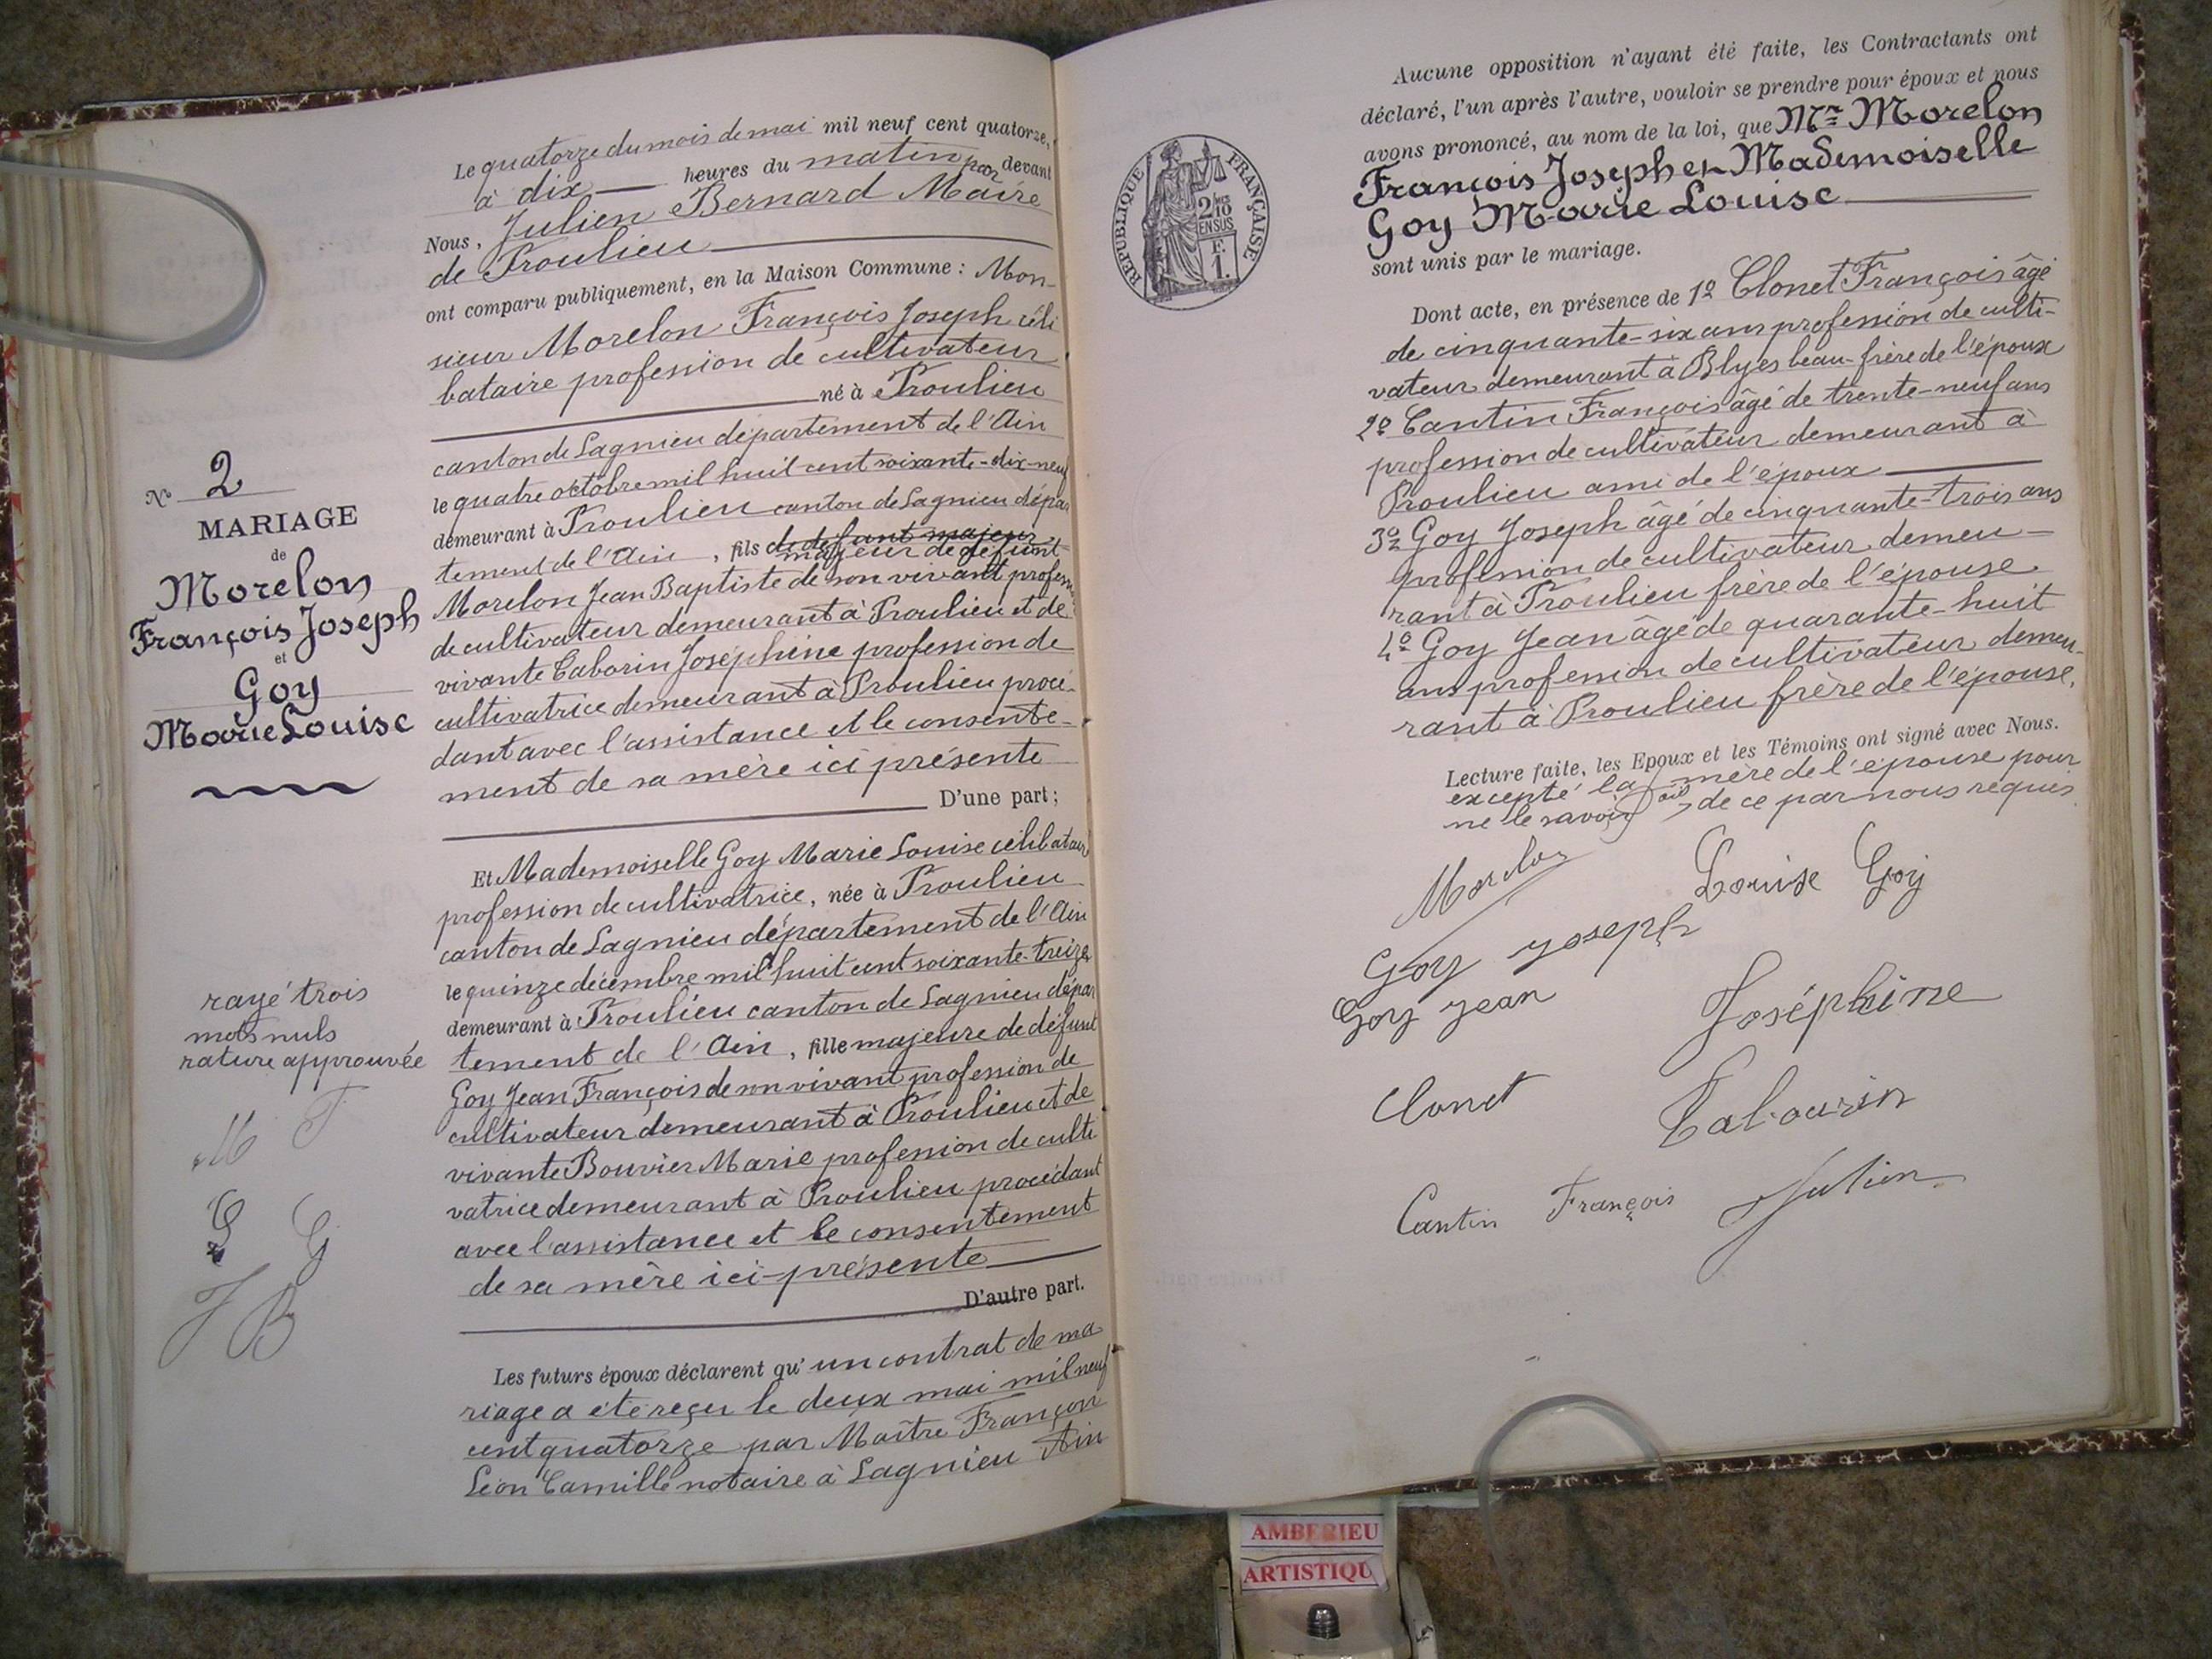 Le quatorze du mois de mai mil neuf cent quatorze,
à dix heures du matin par devant
Nous, Julien Bernard Maire
de Proulieu
ont comparu publiquement, en la Maison Commune : Mon-
sieur Morelon François Joseph céli
bataire profession de cultivateur
né à Proulieu
canton de Lagnieu département de l'Ain
le quatre octobre mil huit cent soixante-dix-neuf
demeurant à Proulieu canton de Lagnieu dépar
tement de l'Ain, fils de défunt majeur
majeur de défunt
Morelon Jean Baptiste de son vivant profession
de cultivateur demeurant à Proulieu et de
vivante Caborin Joséphine profession de
cultivatrice demeurant à Proulieu procé-
dant avec l'assistance et le consente-
ment de sa mère ici présente
D'une part ;
Et Mademoiselle Goy Marie Louise célibataire
profession de cultivatrice, née à Proulieu
canton de Lagnieu département de l'Ain
le quinze décembre mil huit cent soixante-treize
demeurant à Proulieu canton de Lagnieu dépar
tement de l'Ain, fille majeure de défunt
Goy Jean François de son vivant profession de
cultivateur demeurant à Proulieu et de
vivante Bouvier Marie profession de culti
vatrice demeurant à Proulieu procédant
avec l'assistance et le consentement
de sa mère ici-présente
D'autre part.
Les futurs époux déclarent qu'un contrat de ma
riage a été reçu le deux mai mil neuf
cent quatorze par Maître Françon
Léon Camille notaire à Lagnieu Ain
No 2
MARIAGE
de
Morelon
François Joseph
et
Goy
Marie Louise
rayé trois
mots nuls
rature approuvée
M F
G G
J B
Aucune opposition n'ayant été faite, les Contractants ont
déclaré, l'un après l'autre, vouloir se prendre pour époux et nous
avons prononcé, au nom de la loi, que Mr Morelon
François Joseph et Mademoiselle
Goy Marie Louise
sont unis par le mariage.
Dont acte, en présence de 1º Clonet François âgé
de cinquante-six ans profession de culti-
vateur demeurant à Blyes beau-frère de l'époux
2º Cantin François âgé de trente-neuf ans
profession de cultivateur demeurant à
Proulieu ami de l'époux
3º Goy Joseph âgé de cinquante-trois ans
profession de cultivateur demeu-
rant à Proulieu frère de l'épouse.
4º Goy Jean âgé de quarante-huit
ans profession de cultivateur demeu-
rant à Proulieu frère de l'épouse.
Lecture faite, les Epoux et les Témoins ont signé avec Nous.
excepté la mère de l'épouse pour
ne le savoir de ce par nous requis
Morelon
Louise Goy
Goy Joseph
Goy Jean
Joséphine
Clonet
Cabourin
Cantin François
Julien
REPUBLIQUE FRANÇAISE
2/10
EN SUS
F.
1.
AMBERIEU
ARTISTIQU